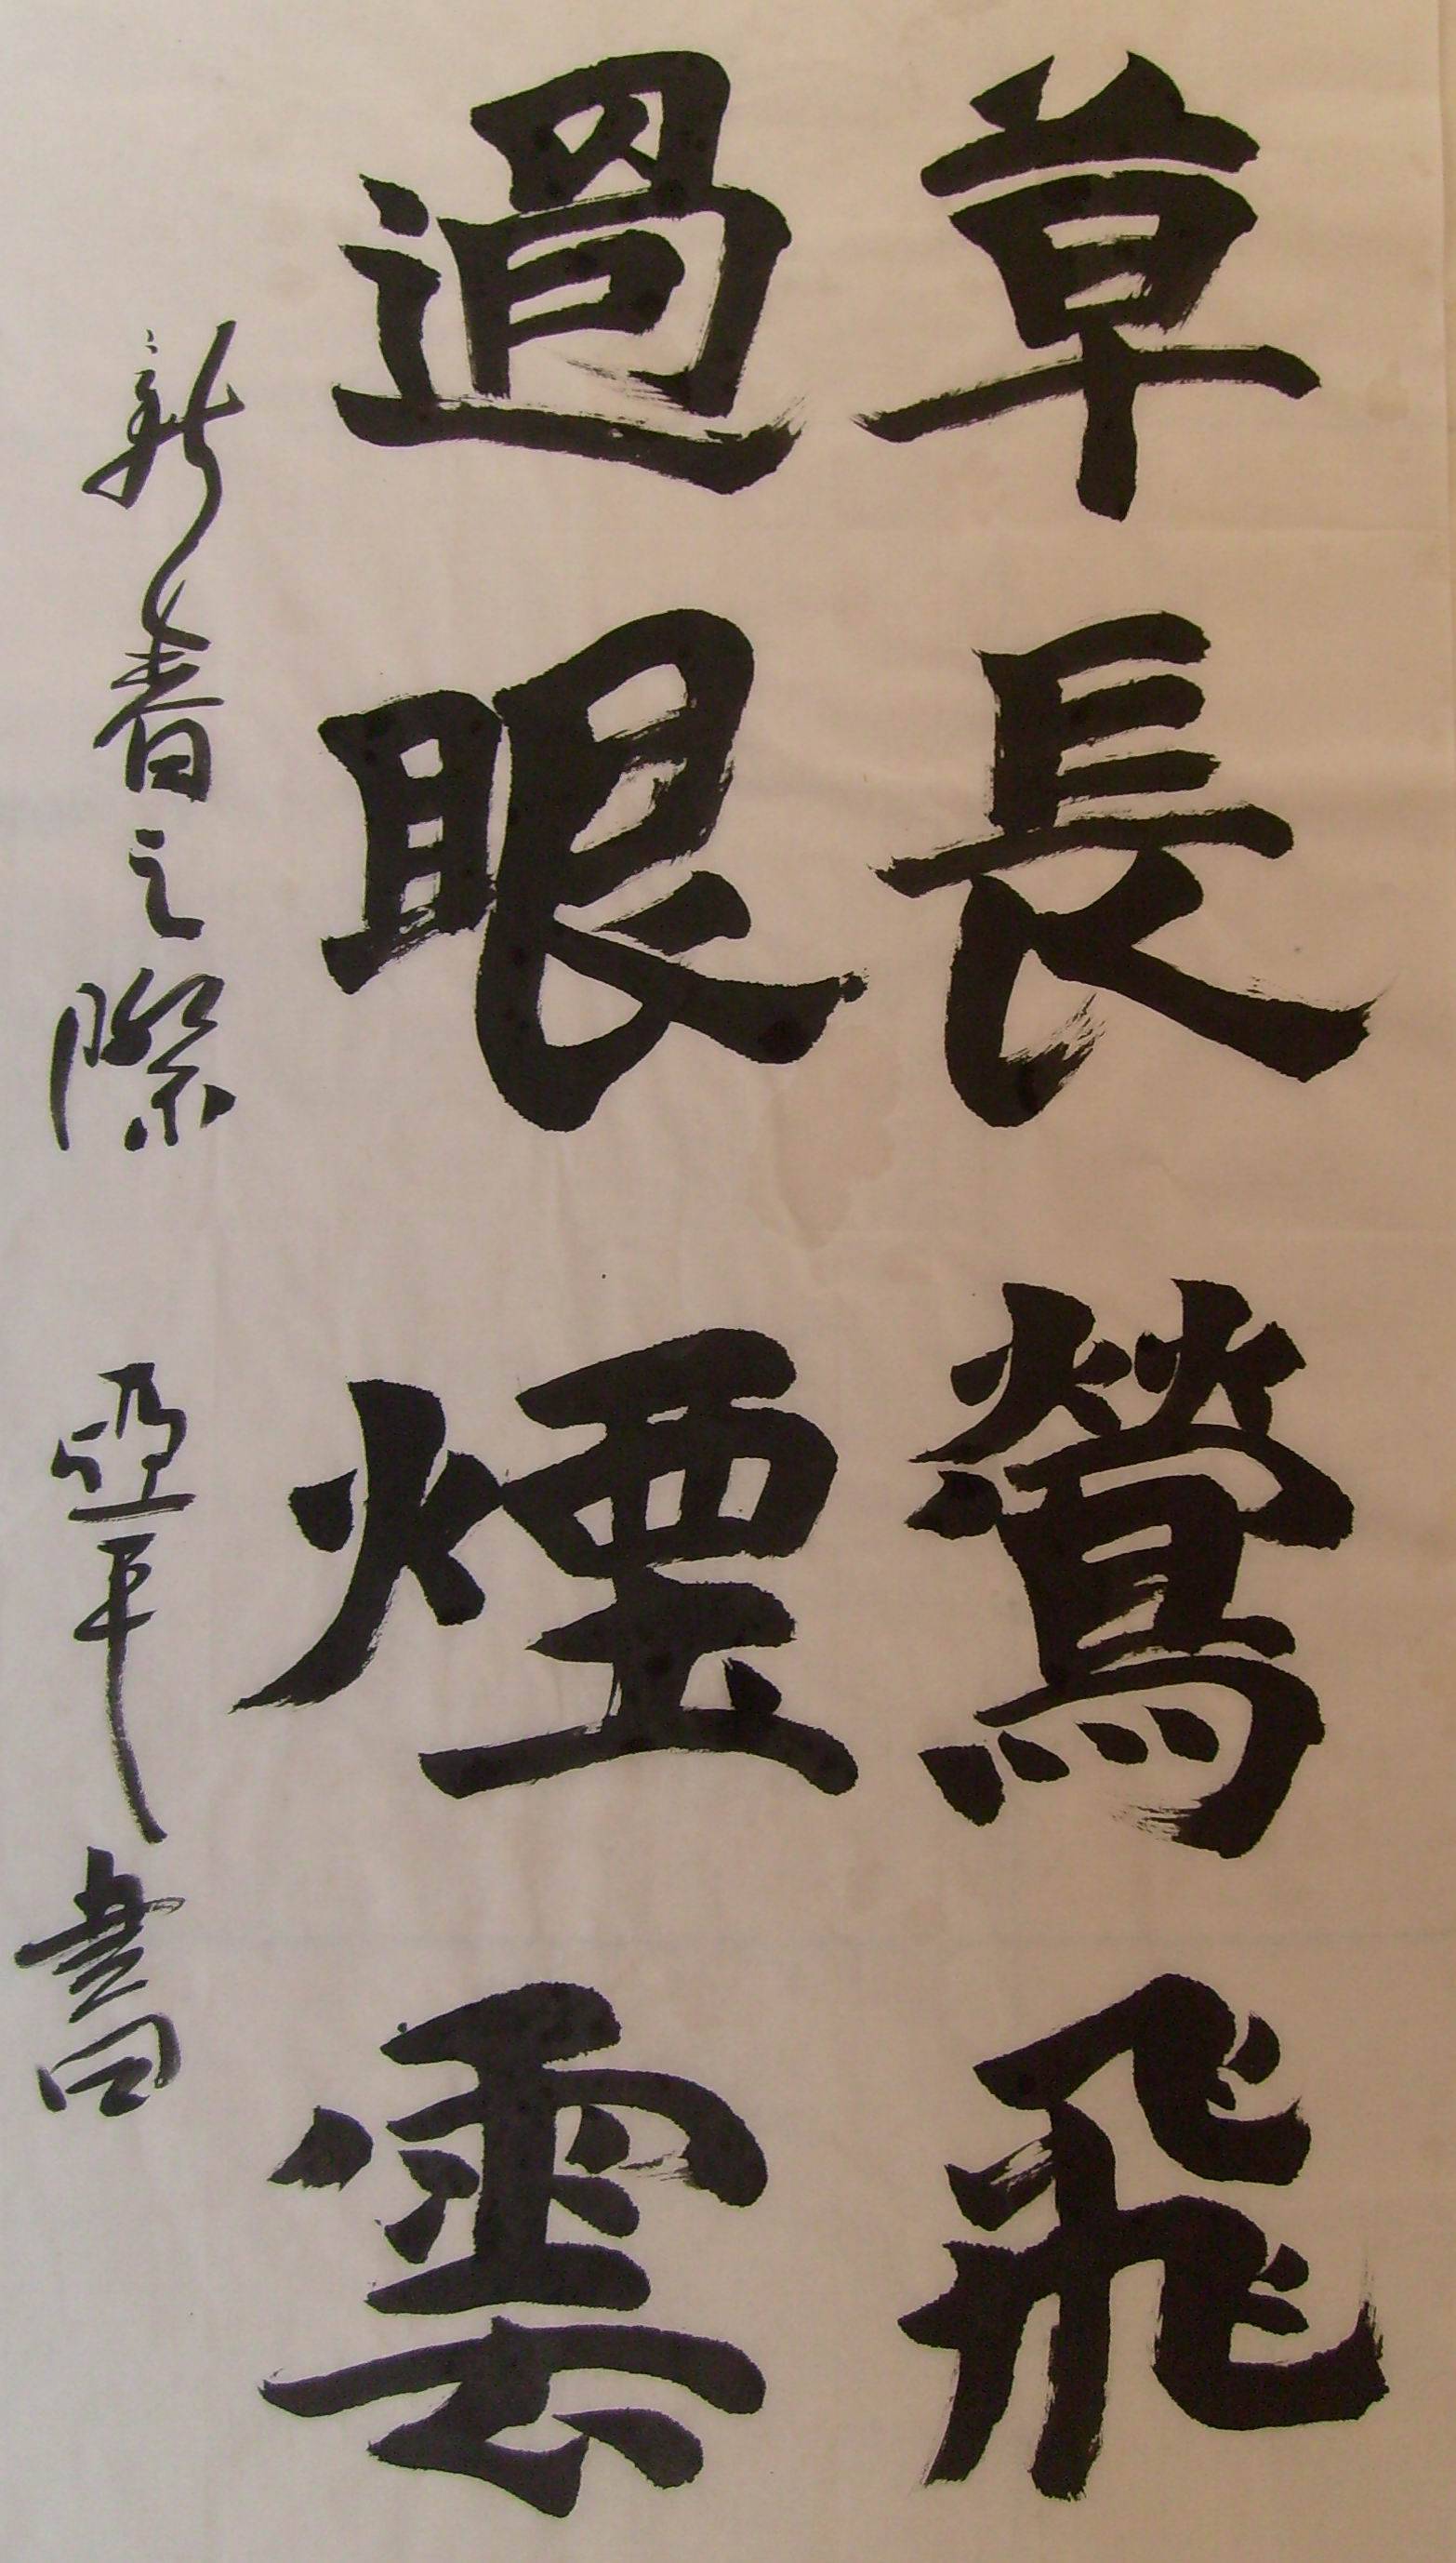 草長鶯飛
過眼煙雲
新春之際 亞平書